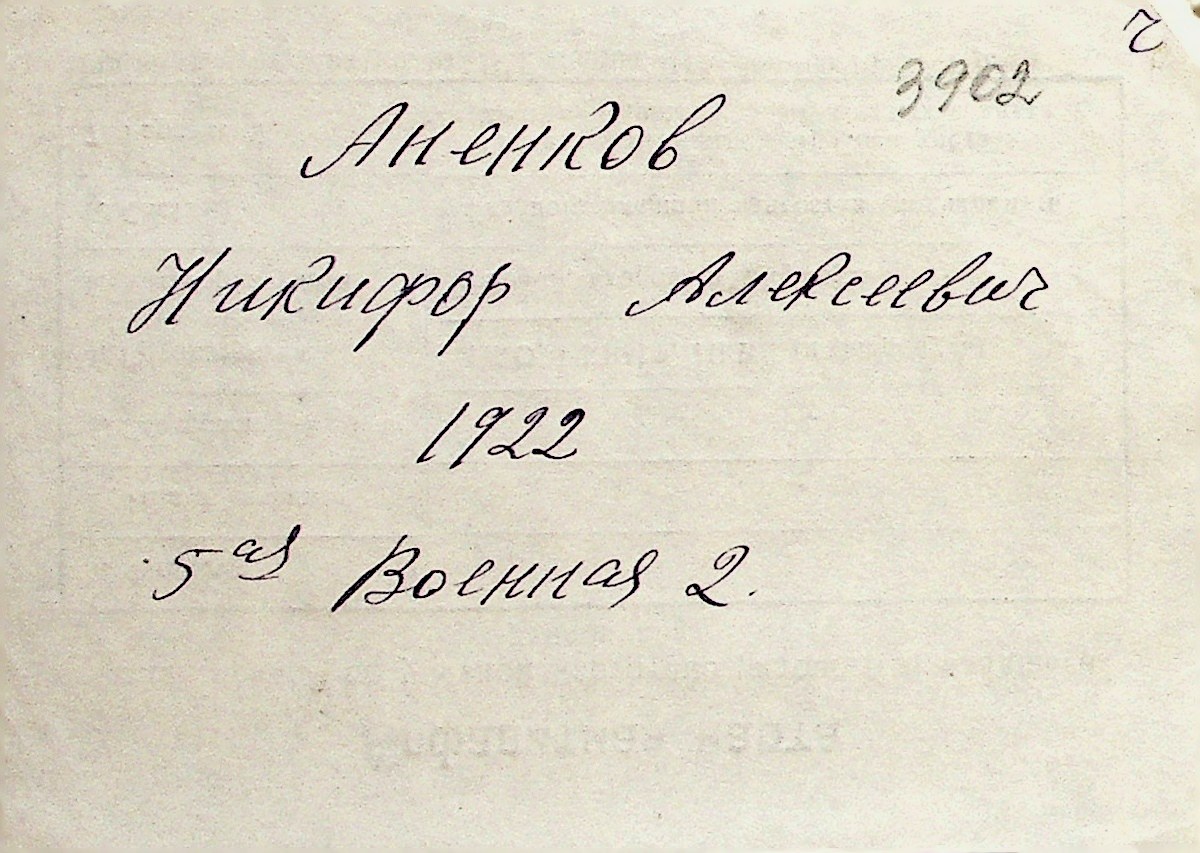 ч
3902
Аненков
Никифор Алексеевич
1922
5ая Военная 2.